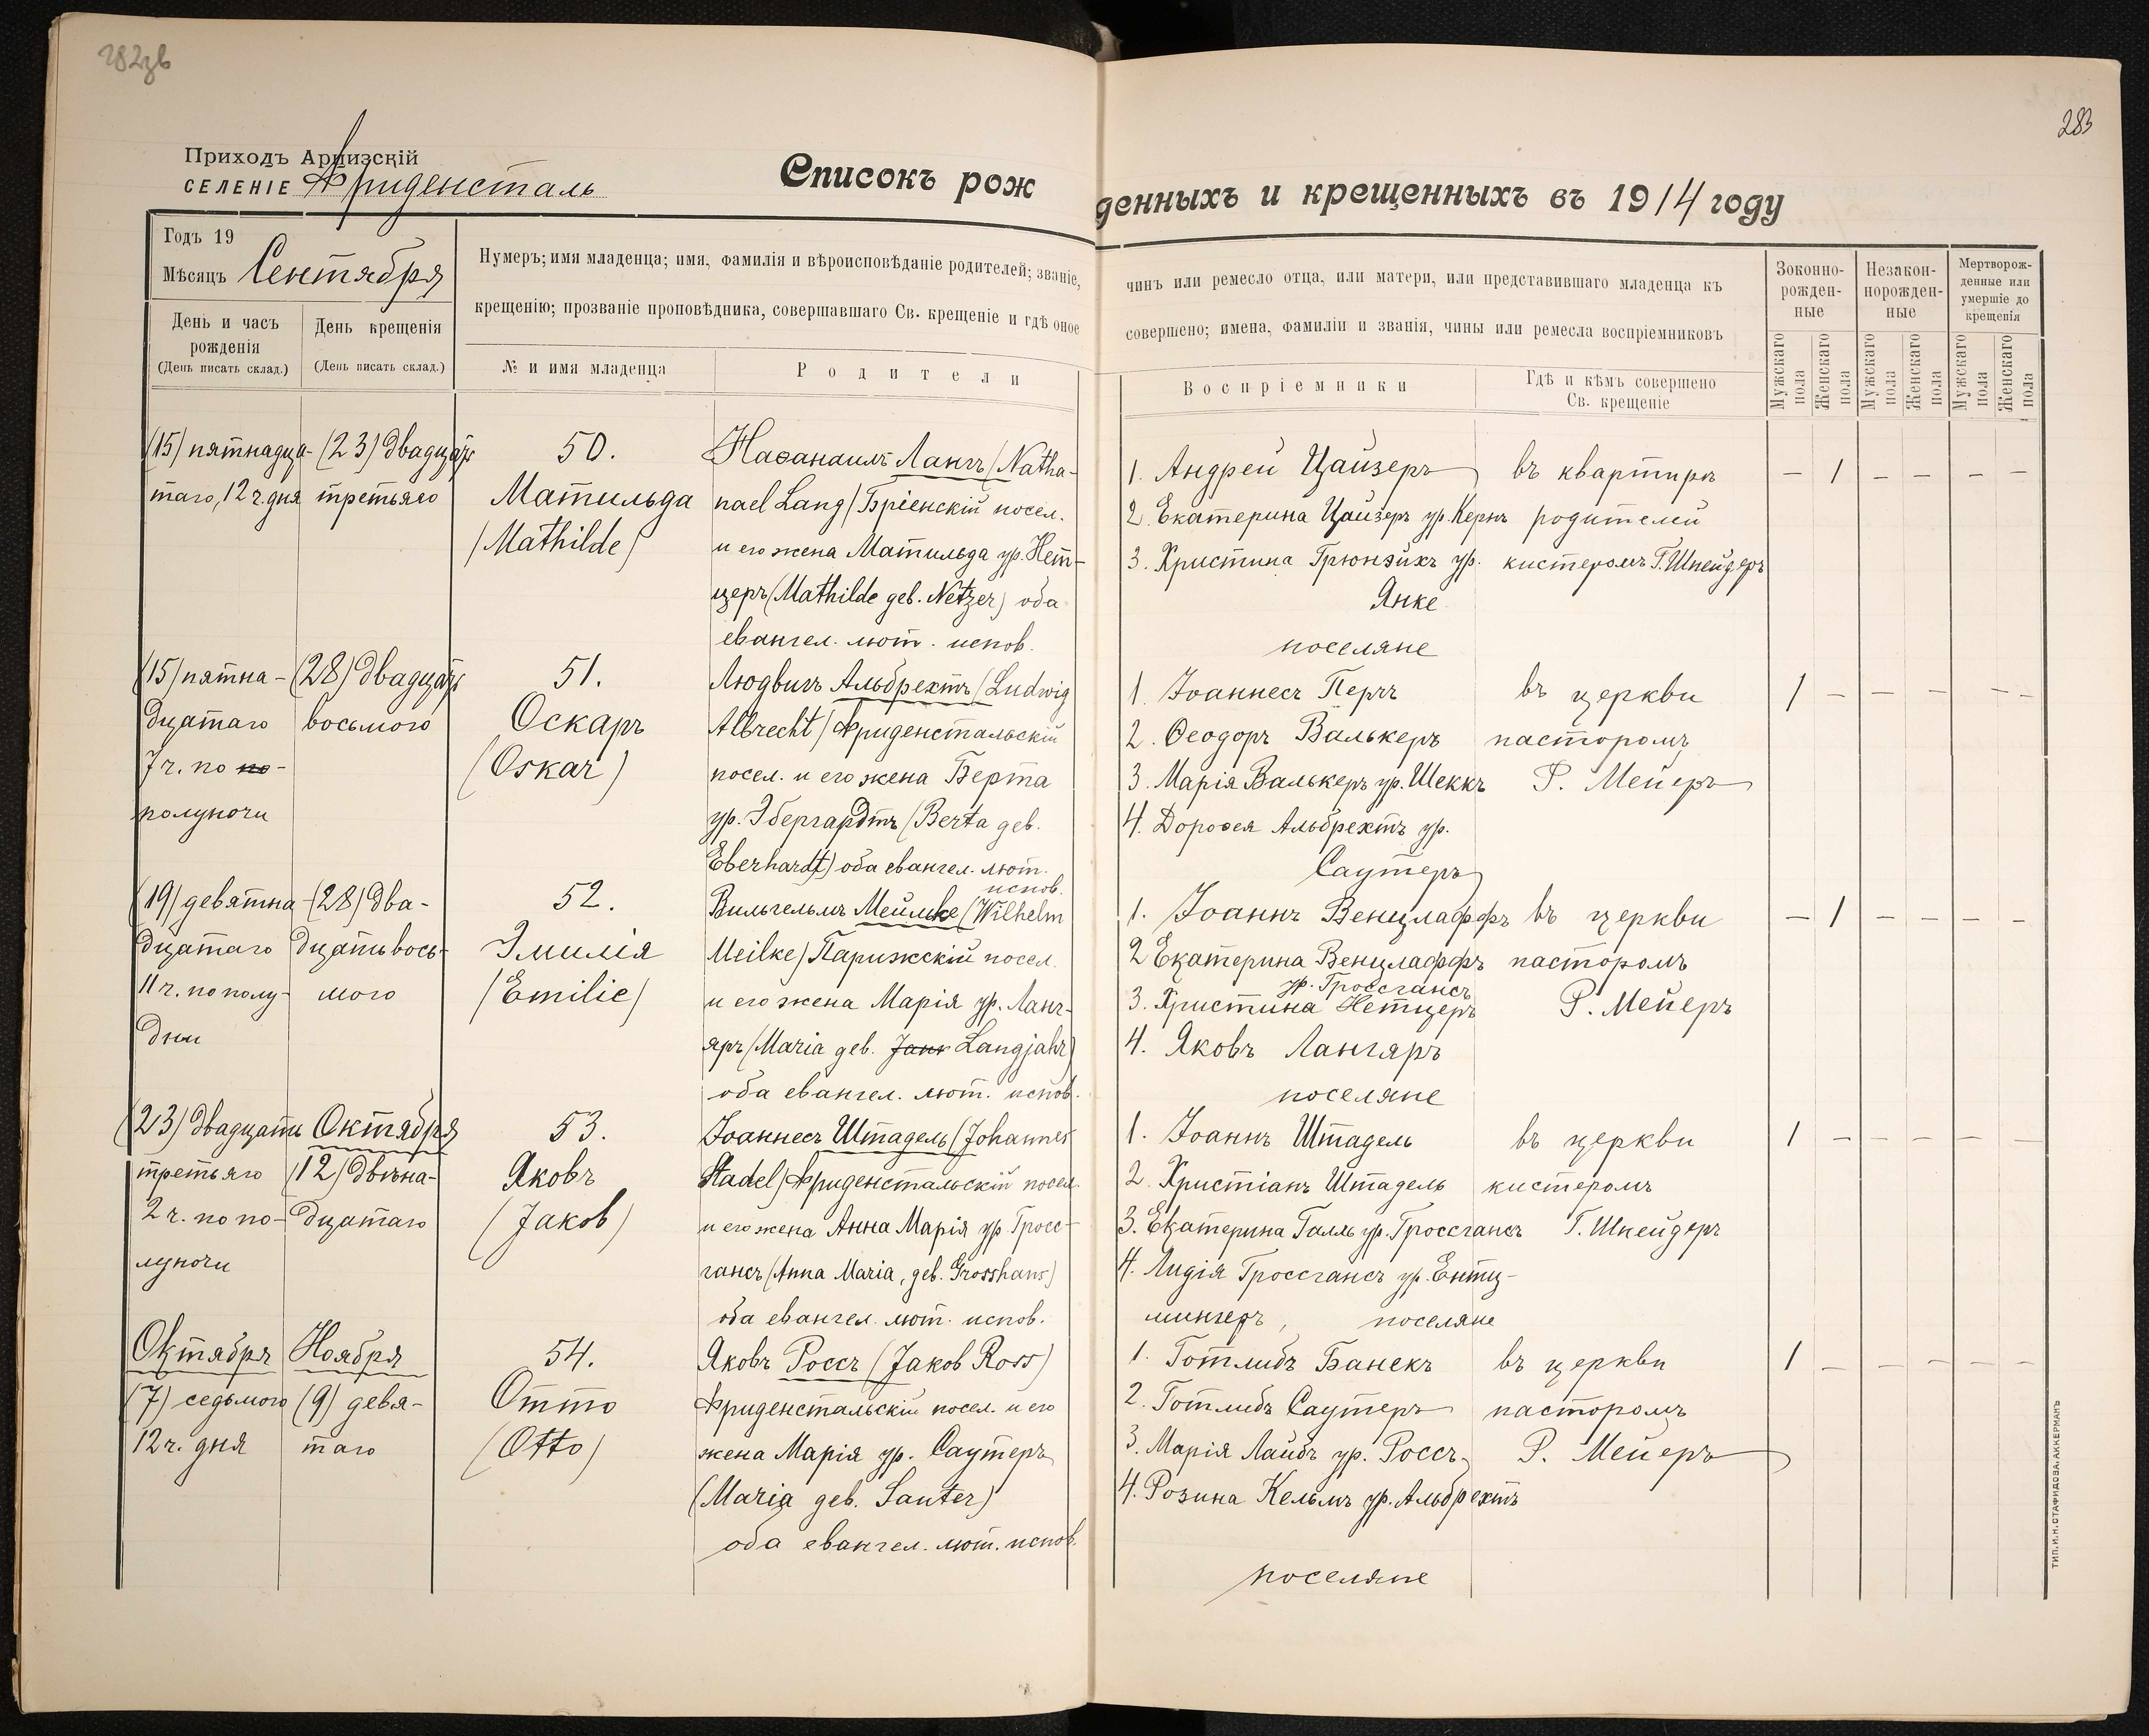 282зв
283
Приходъ Арцизскій
СЕЛЕНІЕ Фриденсталь
Списокъ рожденныхъ и крещенныхъ въ 1914 году
Годъ 19
Мѣсяцъ Сентября
Нумеръ; имя младенца; имя, фамилія и вѣроисповѣданіе родителей; званіе,
чинъ или ремесло отца, или матери, или представившаго младенца къ
крещенію; прозваніе проповѣдника, совершавшаго Св. крещеніе и гдѣ оное
совершено; имена, фамиліи и званія, чины или ремесла воспріемниковъ
День и часъ
рожденія
(День писать склад.)
День крещенія
(День писать склад.)
№ и имя младенца
Родители
Воспріемники
Гдѣ и кѣмъ совершено
Св. крещеніе
Зоконно-
рожден-
ные
Незакон-
норожден-
ные
Мертворож-
денные или
умершіе до
крещенія
Мужскаго пола
Женскаго пола
Мужскаго пола
Женскаго пола
Мужскаго пола
Женскаго пола
(15) пятнадца-
таго, 12 ч. дня
(23) двадцать
третьяго
50.
Матильда
(Mathilde)
Наѳанаилъ Лангъ (Natha-
nael Lang) Бріенскій посел.
и его жена Матильда ур. Нет-
церъ (Mathilde geb. Netzer) оба
евангел. лют. испов.
1. Андрей Цайзеръ
2. Екатерина Цайзеръ ур. Кернъ
3. Христина Грюнэйхъ ур.
Янке
поселяне
въ квартирѣ
родителей
кистеромъ Г. Шнейдеръ
— 1 — — — —
(15) пятна-
дцатаго
7 ч. по по-
полуночи
(28) двадцать
восьмого
51.
Оскаръ
(Oskar)
Людвигъ Альбрехтъ (Ludwig
Albrecht) Фриденстальскій
посел. и его жена Берта
ур. Эбергардтъ (Berta geb.
Eberhardt) оба евангел. лют.
испов.
1. Іоаннесъ Перчъ
2. Ѳеодоръ Валькеръ
3. Марія Валькеръ ур. Шеккъ
4. Дороѳея Альбрехтъ ур.
Саутеръ
въ церкви
пасторомъ
Р. Мейеръ
1 — — — — —
(19) девятна-
дцатаго
11 ч. по полу-
дни
(28) два-
дцать вось-
мого
52.
Эмилія
(Emilie)
Вильгельмъ Мейльке (Wilhelm
Meilke) Парижскій посел.
и его жена Марія ур. Ланг-
яръ (Maria geb. Janк Langjahr)
оба евангел. лют. испов.
1. Іоаннъ Венцлаффъ
2 Екатерина Венцлаффъ
ур. Гроссгансъ
3. Христина Нетцеръ
4. Яковъ Лангяръ
поселяне
въ церкви
пасторомъ
Р. Мейеръ
— 1 — — — —
(23) двадцать
третьяго
2 ч. по по-
луночи
Октября
(12) двѣна-
дцатаго
53.
Яковъ
(Jakob)
Іоаннесъ Штадель (Johannes
Stadel) Фриденстальскій посел.
и его жена Анна Марія ур. Гросс-
гансъ (Anna Maria, geb. Grosshans)
оба евангел. лют. испов.
1. Іоаннъ Штадель
2. Христіанъ Штадель
3. Екатерина Галль ур. Гроссгансъ
4. Лидія Гроссгансъ ур. Ентц-
мингеръ, поселяне
въ церкви
кистеромъ
Г. Шнейдеръ
1 — — — — —
Октября
(7) седьмого
12 ч. дня
Ноября
(9) девя-
таго
54.
Отто
(Otto)
Яковъ Россъ (Jakob Ross)
Фриденстальскій посел. и его
жена Марія ур. Саутеръ
(Maria geb. Sauter)
оба евангел. лют. испов.
1. Готлибъ Банекъ
2. Готлибъ Саутеръ
3. Марія Лайбъ ур. Россъ
4. Розина Кельмъ ур. Альбрехтъ
поселяне
въ церкви
пасторомъ
Р. Мейеръ
1 — — — — —
ТИП. И. Н. СТАФИДОВА. АККЕРМАНЪ